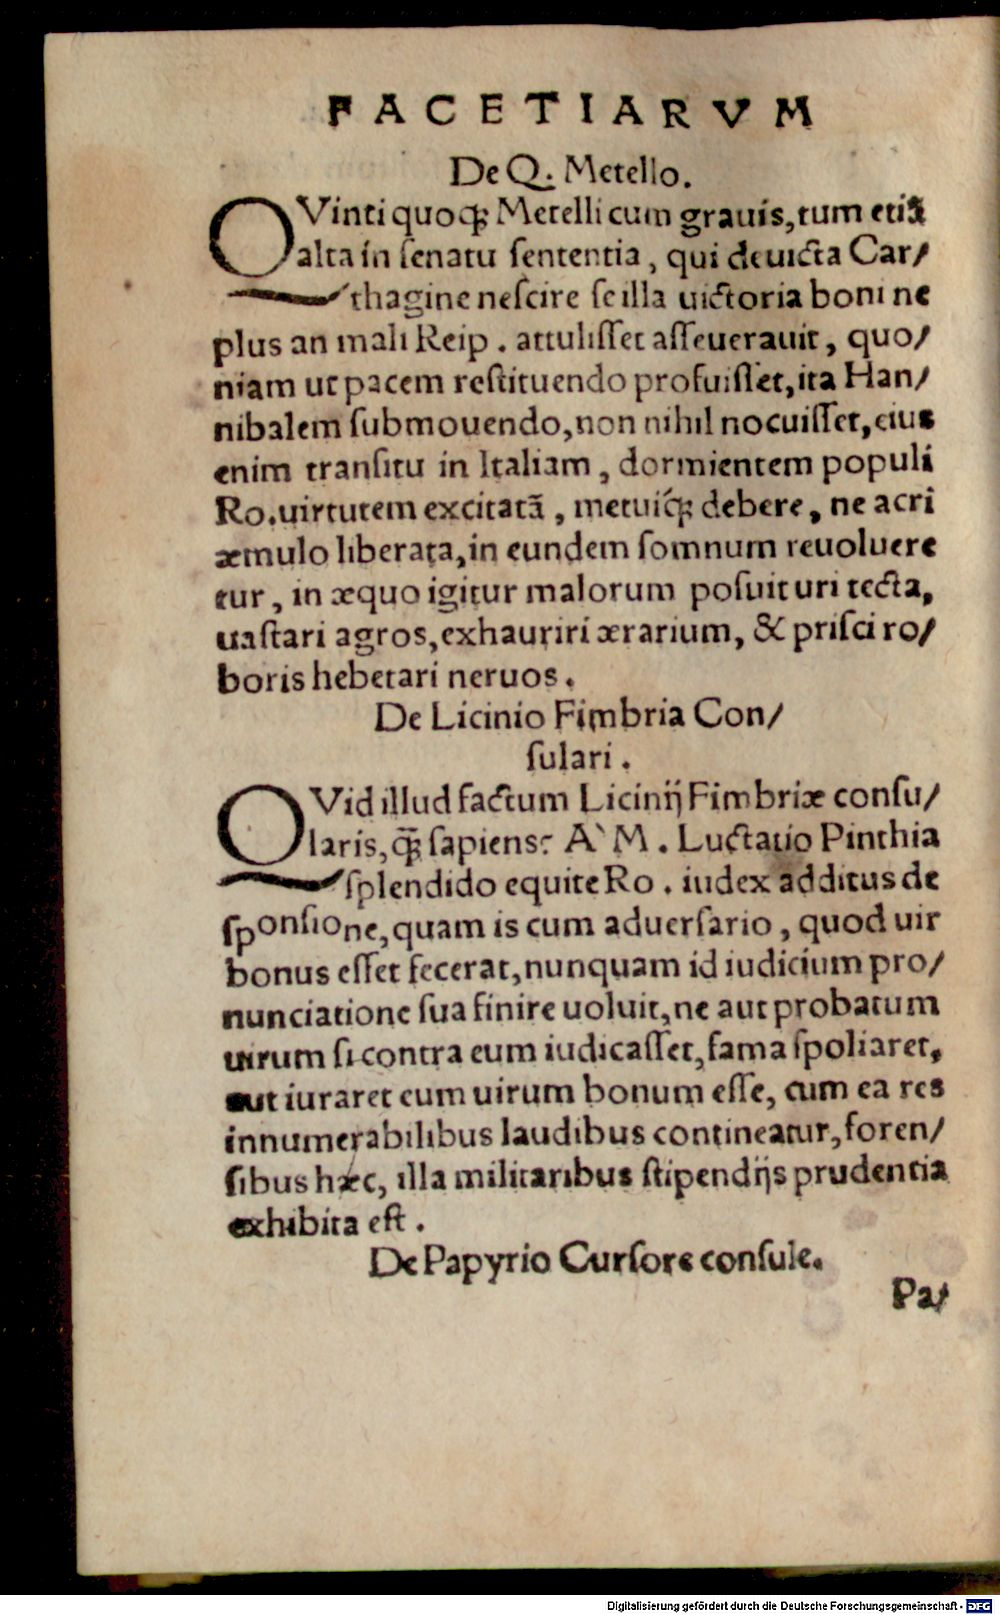 FACETIARVM
De Q. Metello.
QVinti quoqꝫ Metelli cum grauis, tum etiã
alta in ſenatu ſententia, qui deuicta Car/
thagine neſcire ſe illa uictoria boni ne
plus an mali Reip. attuliſſet aſſeuerauit, quo/
niam ut pacem reſtituendo profuiſſet, ita Han/
nibalem ſubmouendo, non nihil nocuiſſet, eius
enim tranſitu in Italiam, dormientem populi
Ro. uirtutem excitatã, metuiq́ꝫ debere, ne acri
æmulo liberata, in eundem ſomnum reuoluere
tur, in æquo igitur malorum poſuit uri tecta,
uaſtari agros, exhauriri ærarium, & priſci ro/
boris hebetari neruos.
De Licinio Fimbria Con/
ſulari.
QVid illud factum Licinij Fimbriæ conſu/
laris, q̃ꝫ ſapiens: A` M. Luctatio Pinthia
ſplendido equite Ro. iudex additus de
ſponſione, quam is cum aduerſario, quod uir
bonus eſſet fecerat, nunquam id iudicium pro/
nunciatione ſua finire uoluit, ne aut probatum
uirum ſi contra eum iudicaſſet, fama ſpoliaret,
aut iuraret eum uirum bonum eſſe, cum ea res
innumerabilibus laudibus contineatur, foren/
ſibus hæc, illa militaribus ſtipendijs prudentia
exhibita eſt.
De Papyrio Curſore conſule.
Pa/
Digitalisierung gefördert durch die Deutsche Forschungsgemeinschaft - DFG